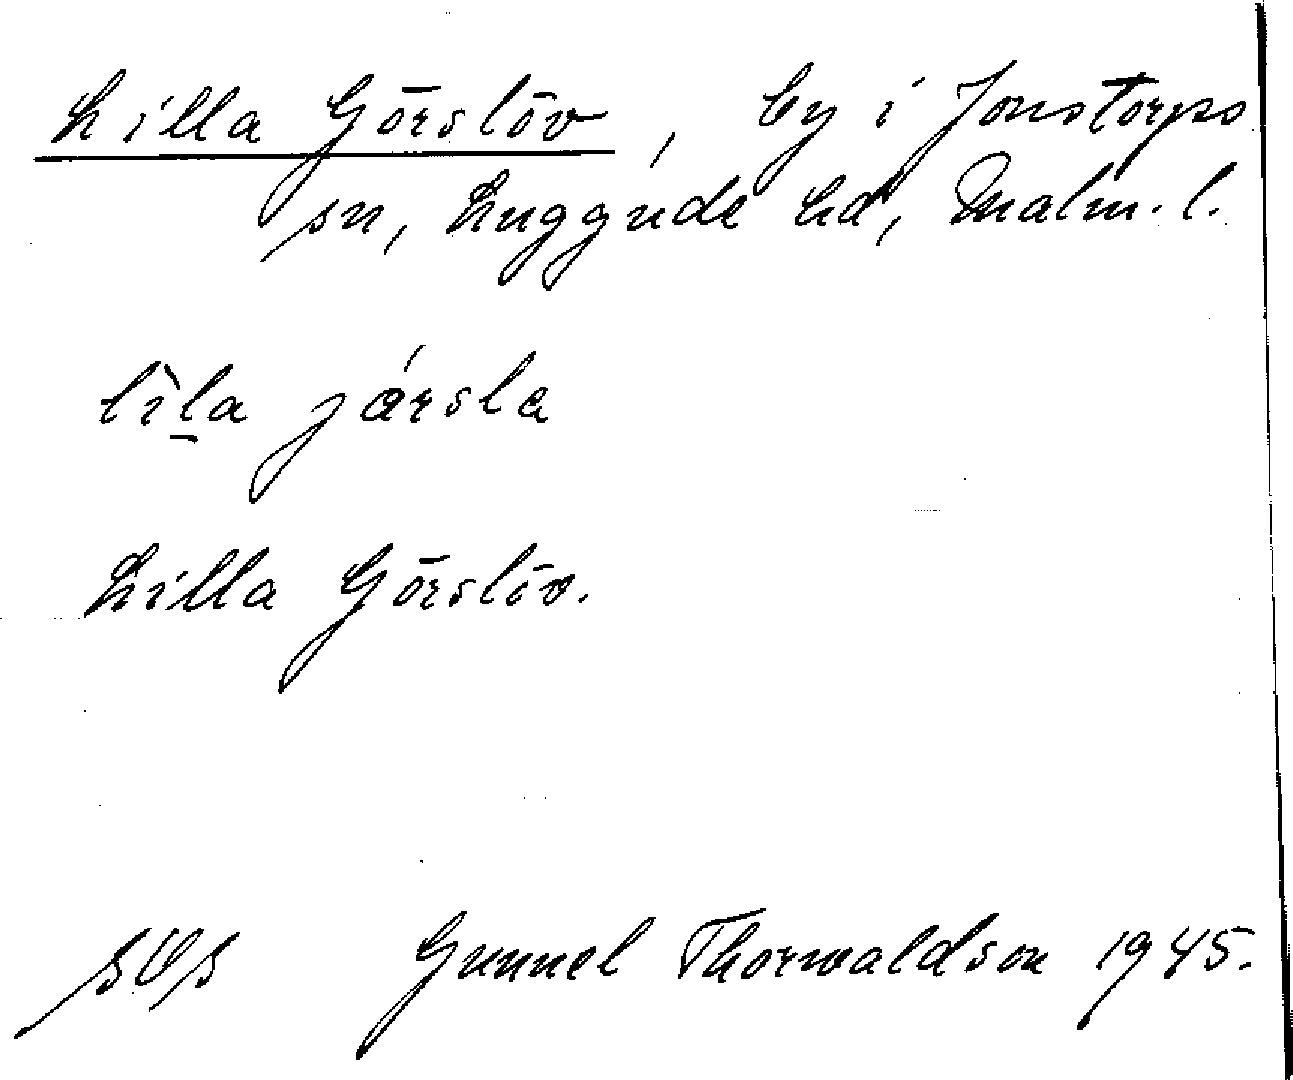 Lilla Görslöv, by i Jonstorps
sn, Luggude hd, Malm. l.
lìla jársla
Lilla Görslöv.
Gunnel Thorwaldson 1945.